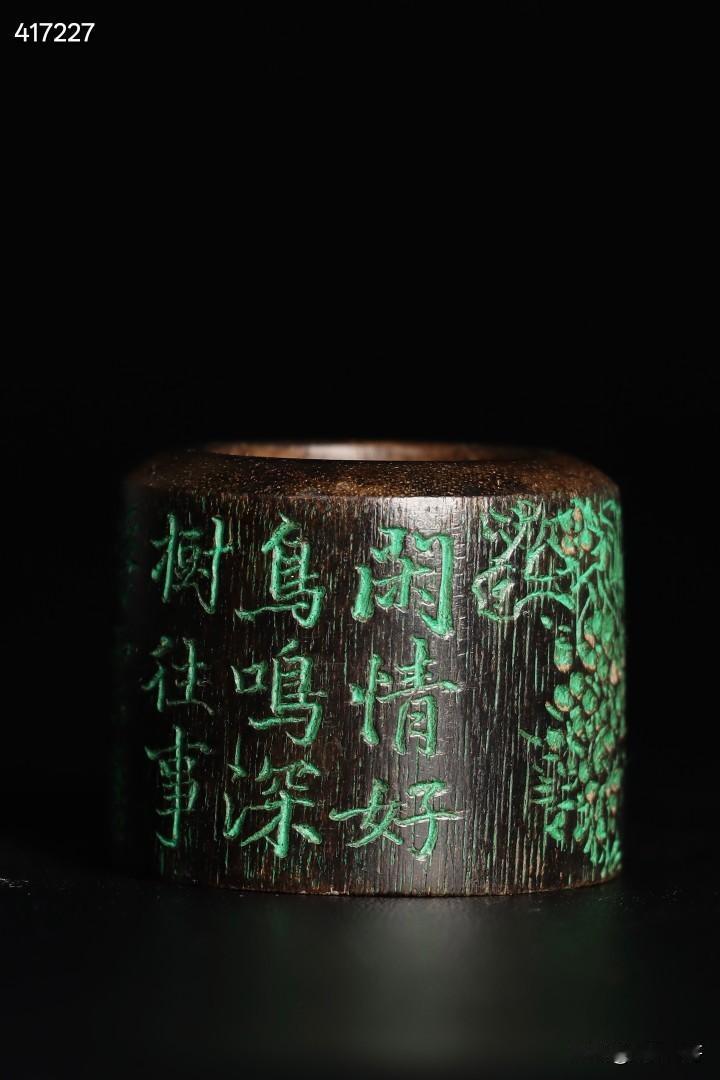 417227
閑情好
鳥鳴深
樹往事